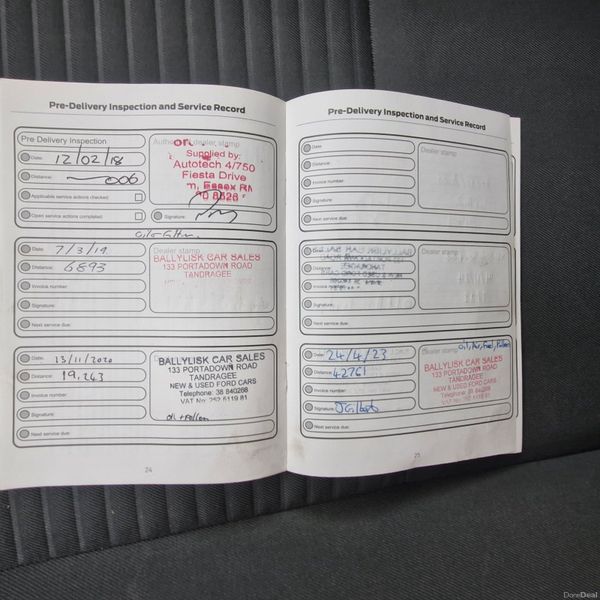 Pre-Delivery Inspection and Service Record
Pre Delivery Inspection
Date: 12/02/18
Distance: 006
Applicable service actions checked
Open service actions completed
dealer stamp
Supplied by:
Autotech 4/750
Fiesta Drive
Essex RM
Signature:
Date: 7/3/19
Distance: 6893
Invoice number:
Signature:
Next service due:
Dealer stamp
BALLYLISK CAR SALES
133 PORTADOWN ROAD
TANDRAGEE
Date: 13/11/2020
Distance: 19,243
Invoice number:
Signature:
Next service due:
BALLYLISK CAR SALES
133 PORTADOWN ROAD
TANDRAGEE
NEW & USED FORD CARS
Telephone: 38 840268
VAT No. 252 5119 81
oil + Pollen
24
Pre-Delivery Inspection and Service Record
Date:
Distance:
Invoice number:
Signature:
Next service due:
Dealer stamp
Date:
Distance:
Invoice number:
Signature:
Next service due:
Date: 24/4/23
Distance: 42761
Invoice number:
Signature:
Next service due:
Dealer stamp
Oil, Air, Fuel, Pollen
BALLYLISK CAR SALES
133 PORTADOWN ROAD
TANDRAGEE
NEW & USED FORD CARS
Telephone: 38 840268
VAT No. 252 5119 81
25
DoneDeal